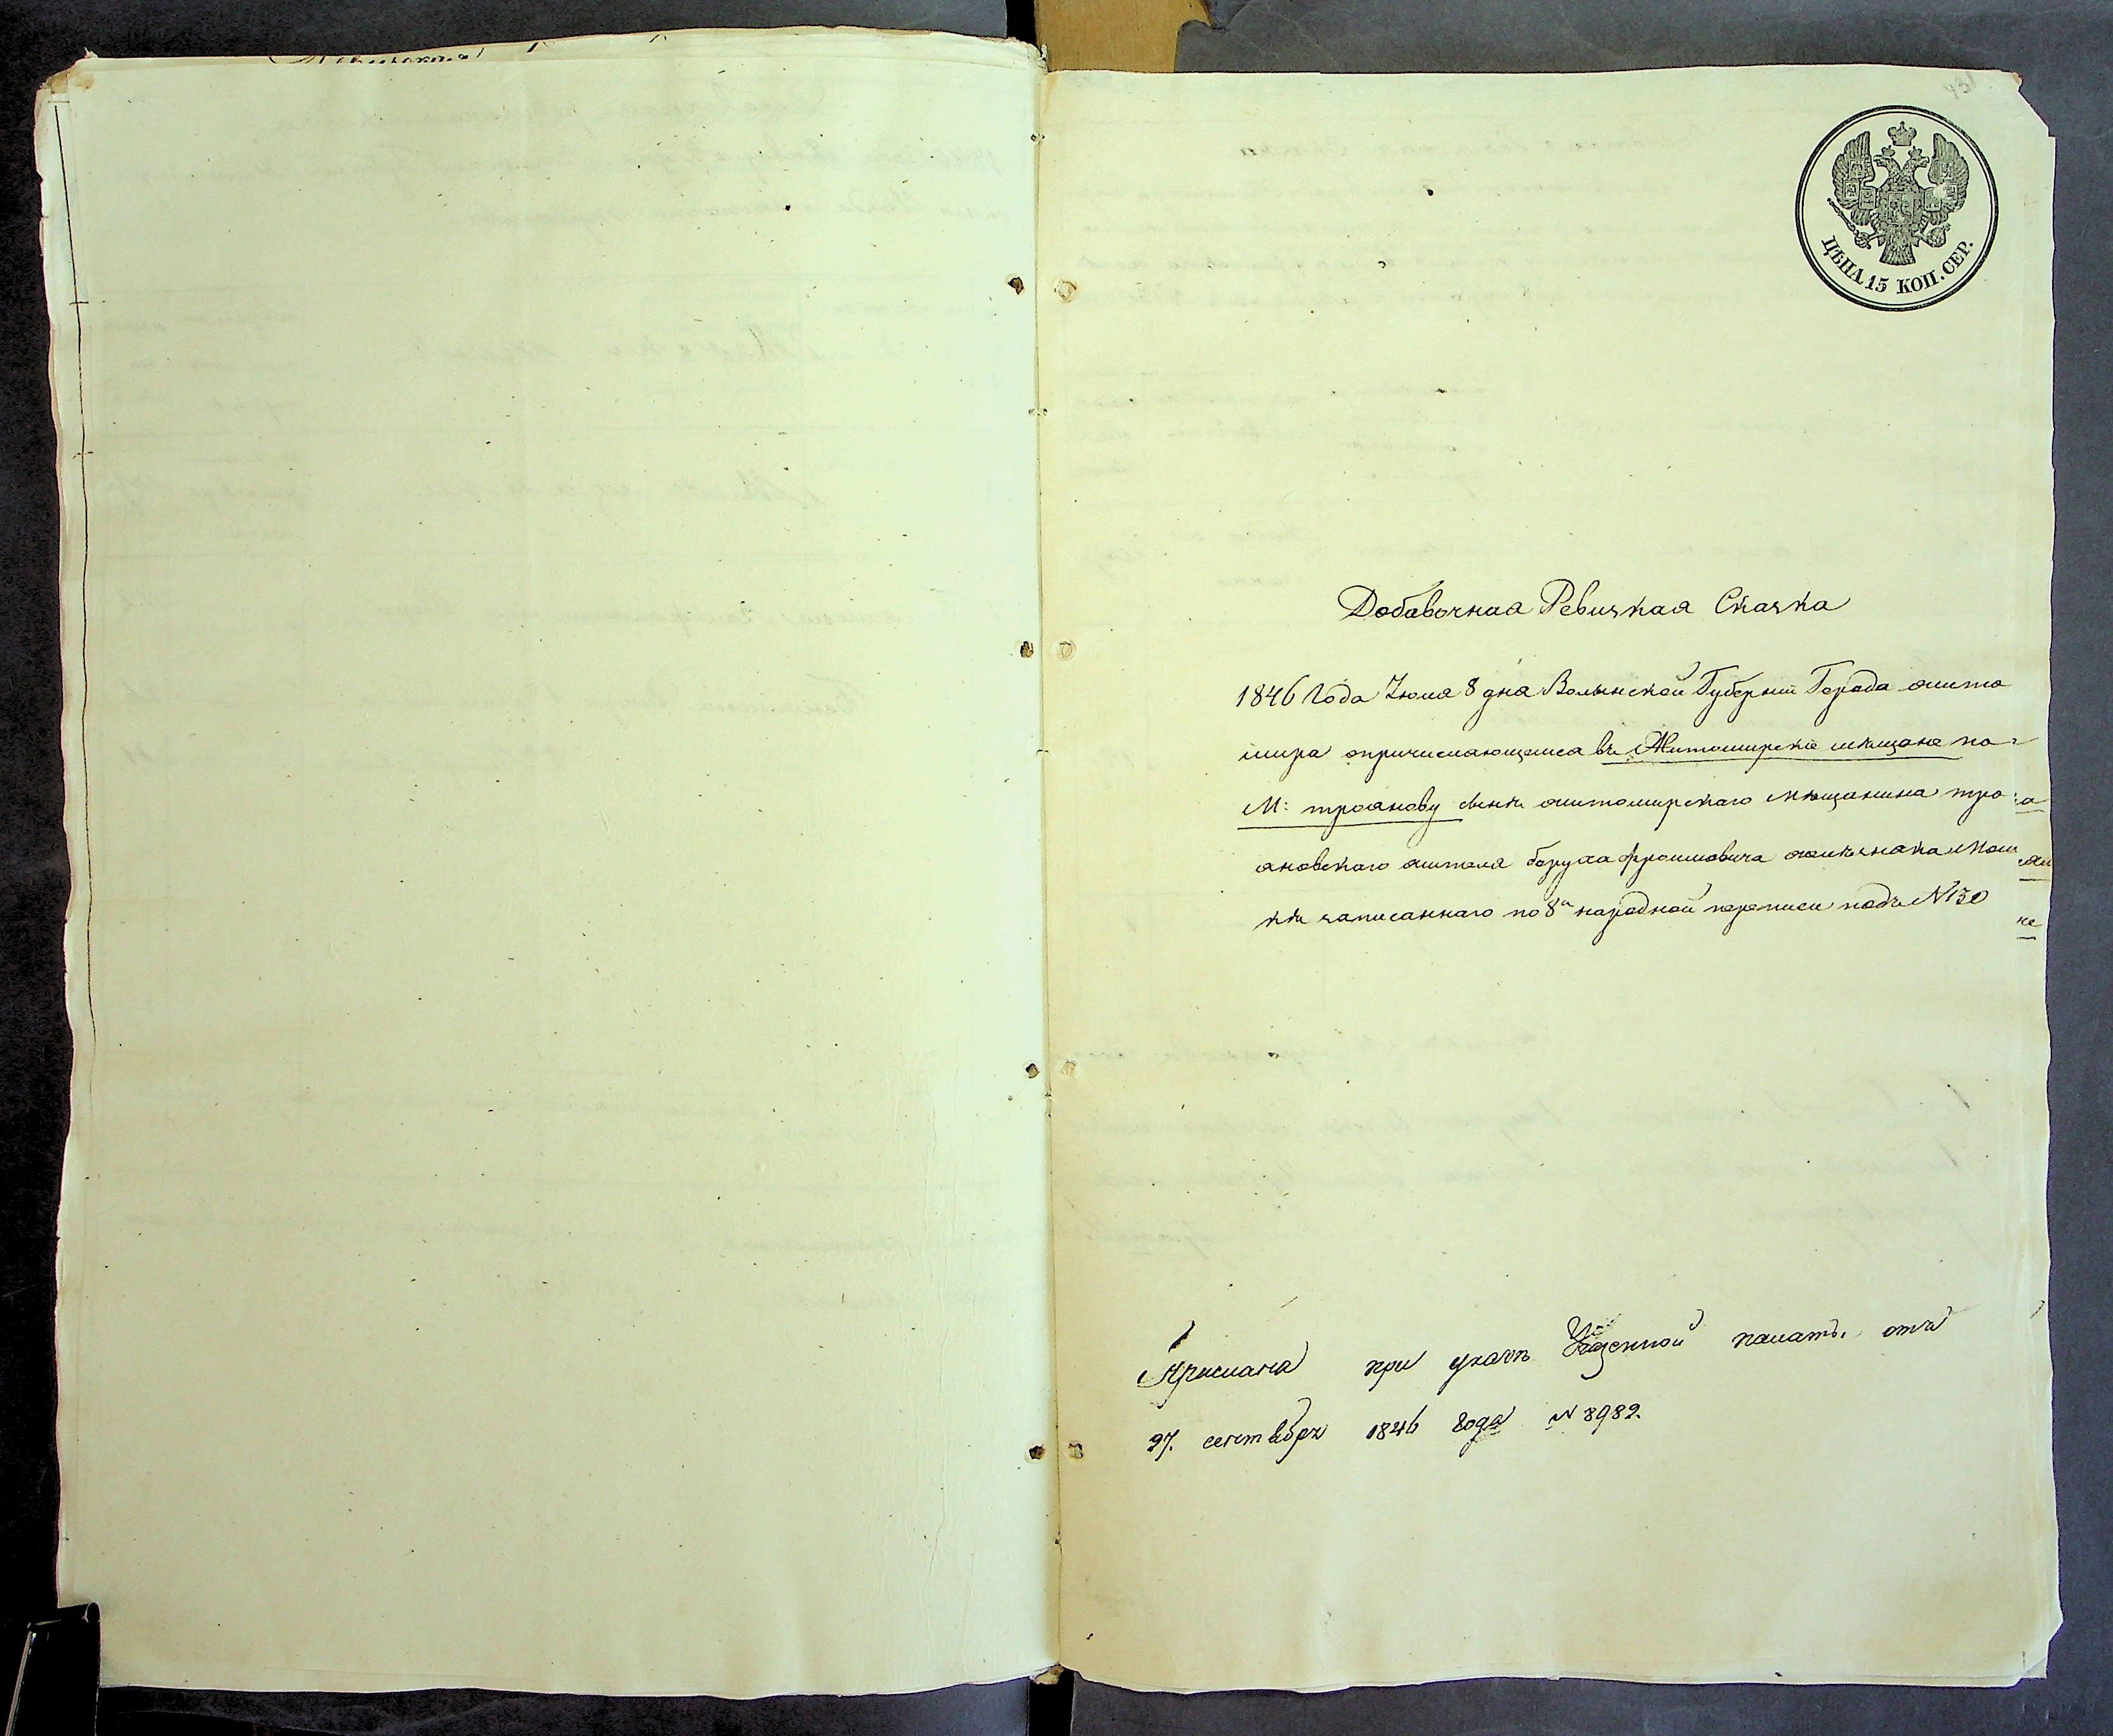 ЦѢНА 15 КОП. СЕР.
Добавочная Ревизкая Сказка
1846 Года Июля 8 дня Волынской Губернiи Города жито
мира опричисляющемся въ Житомирскiе мѣщане по
М: троянову сынѣ житомирскаго мѣщанина тро
яновскаго жителя боруха фроимовича Мош
кѣ записаннаго по 8й народной переписи подъ N 130
Прислана при указѣ Казенной палаты отъ
27. сентября 1846 года N 8982.